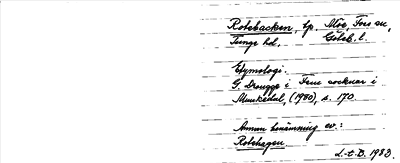 Rotebacken, tp. Moe, Foss sn,
Tunge hd. Göteb. l.
Etymologi:
G. Drougge i Fem socknar i
Munkedal, (1980), s. 170.
Annan benämning ev.:
Rotehagen
L-t B. 1983.